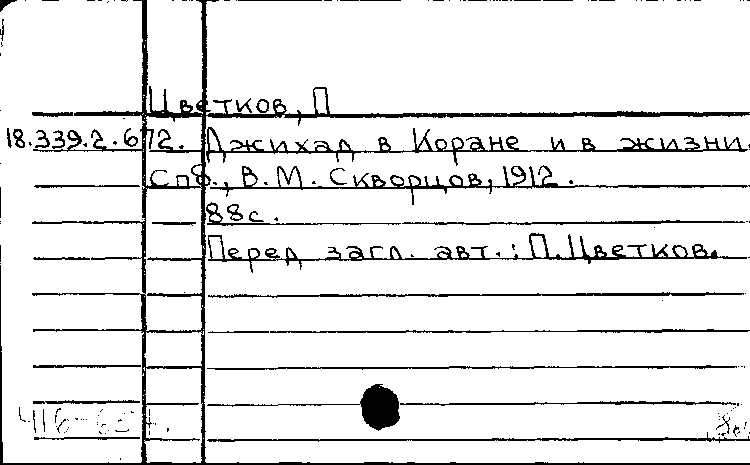 Цветков, П
18.339.2.672. Джихад в Коране и в жизни.
Спб., В.М. Скворцов, 1912.
88с.
Перед загл. авт.: П.Цветков.